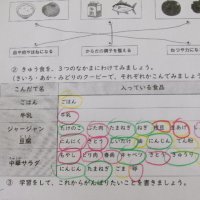 血や肉やほねになる　からだの調子を整える　ねつや力になる
② きゅう食を、３つのなかまにわけてみましょう。
(きいろ・あか・みどりのクーピーで、それぞれかこんでみましょう)
こんだて名　入っている食品
ごはん　ごはん
牛乳　牛乳
ジャージャン　たけのこ　ぶた肉　たまねぎ　ねぎ　あげ
豆腐　にんにく　でんぷん　しょうが　油　にんじん　てん粉
中華サラダ　もやし　とり肉　春雨　キャベツ　きゅうり　さとう
にんじん　たまねぎ　ごま　酢
③ 学習をして、これからがんばりたいことを書きましょう。